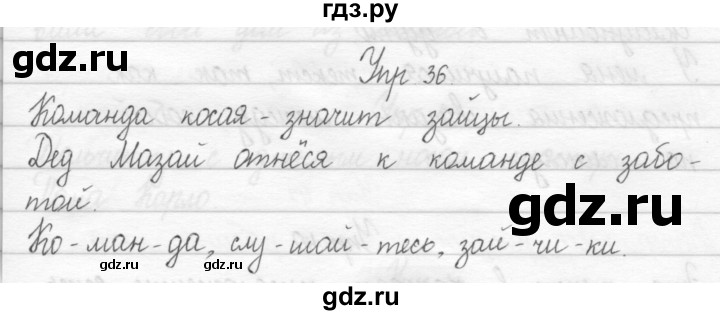 гдз.ру
gdz.ru
Упр 36
Команда косая - значит зайцы.
Дед Мазай отнёсся к команде с забо-
той.
gdz.ru
Ко-ман-да, слу-шай-тесь, зай-чи-ки.
gdz.ru
gdz.ru
gdz.ru